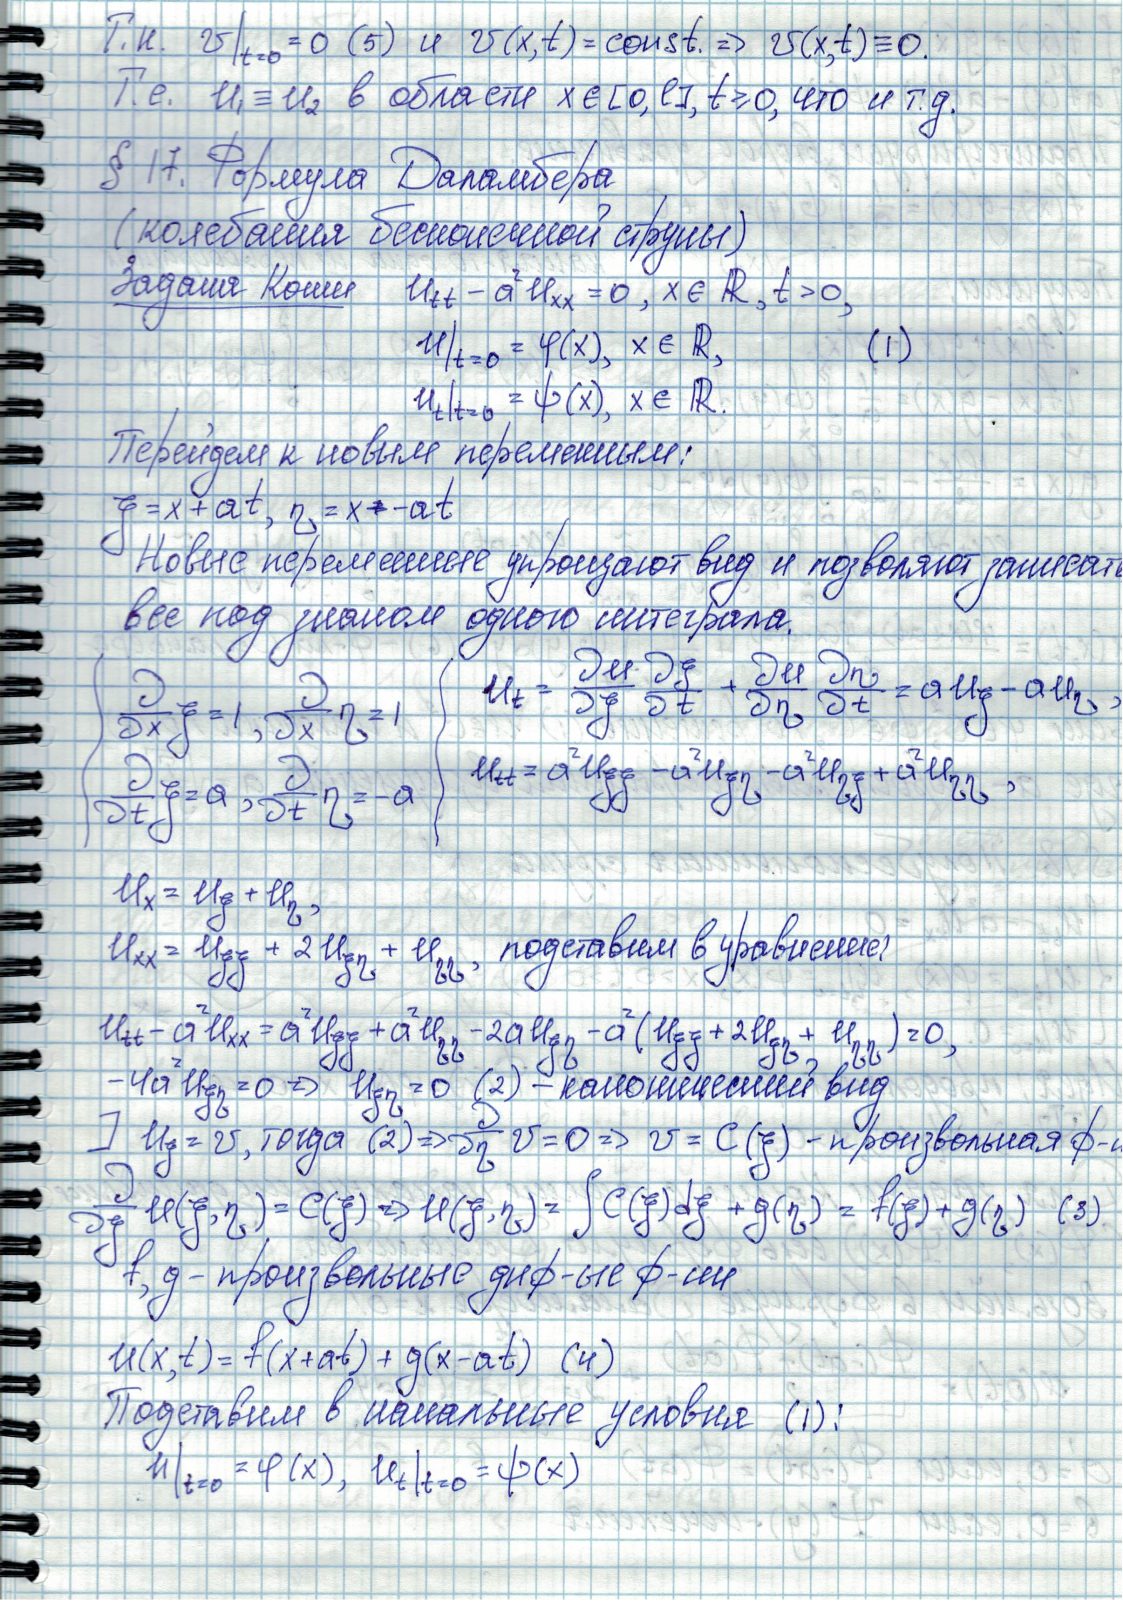 Т.к. v|_{t=0} = 0 (5) и v(x,t) = const. => v(x,t) ≡ 0.
Т.е. u₁ ≡ u₂ в области x ∈ [0, l], t ≥ 0, что и т.д.
§ 17. Формула Даламбера
(колебания бесконечной струны)
Задача Коши u_{tt} - a²u_{xx} = 0, x ∈ ℝ, t > 0,
u|_{t=0} = φ(x), x ∈ ℝ, (1)
u_t|_{t=0} = ψ(x), x ∈ ℝ.
Перейдем к новым переменным:
ξ = x + at, η = x - at
Новые переменные упрощают вид и позволяют записать
все под знаком одного интеграла.
∂/∂x ξ = 1, ∂/∂x η = 1
∂/∂t ξ = a, ∂/∂t η = -a
u_t = ∂u/∂ξ ∂ξ/∂t + ∂u/∂η ∂η/∂t = au_ξ - au_η,
u_{tt} = a²u_{ξξ} - a²u_{ξη} - a²u_{ηξ} + a²u_{ηη},
u_x = u_ξ + u_η,
u_{xx} = u_{ξξ} + 2u_{ξη} + u_{ηη}, подставим в уравнение:
u_{tt} - a²u_{xx} = a²u_{ξξ} + a²u_{ηη} - 2au_{ξη} - a²(u_{ξξ} + 2u_{ξη} + u_{ηη}) = 0,
-4a²u_{ξη} = 0 => u_{ξη} = 0 (2) - канонический вид
] u_ξ = v, тогда (2) => ∂/∂η v = 0 => v = C(ξ) - произвольная ф-и
∂/∂ξ u(ξ, η) = C(ξ) => u(ξ, η) = ∫C(ξ)dξ + g(η) = f(ξ) + g(η) (3)
f, g - произвольные диф-ые ф-ии
u(x,t) = f(x+at) + g(x-at) (4)
Подставим в начальные условия (1):
u|_{t=0} = φ(x), u_t|_{t=0} = ψ(x)